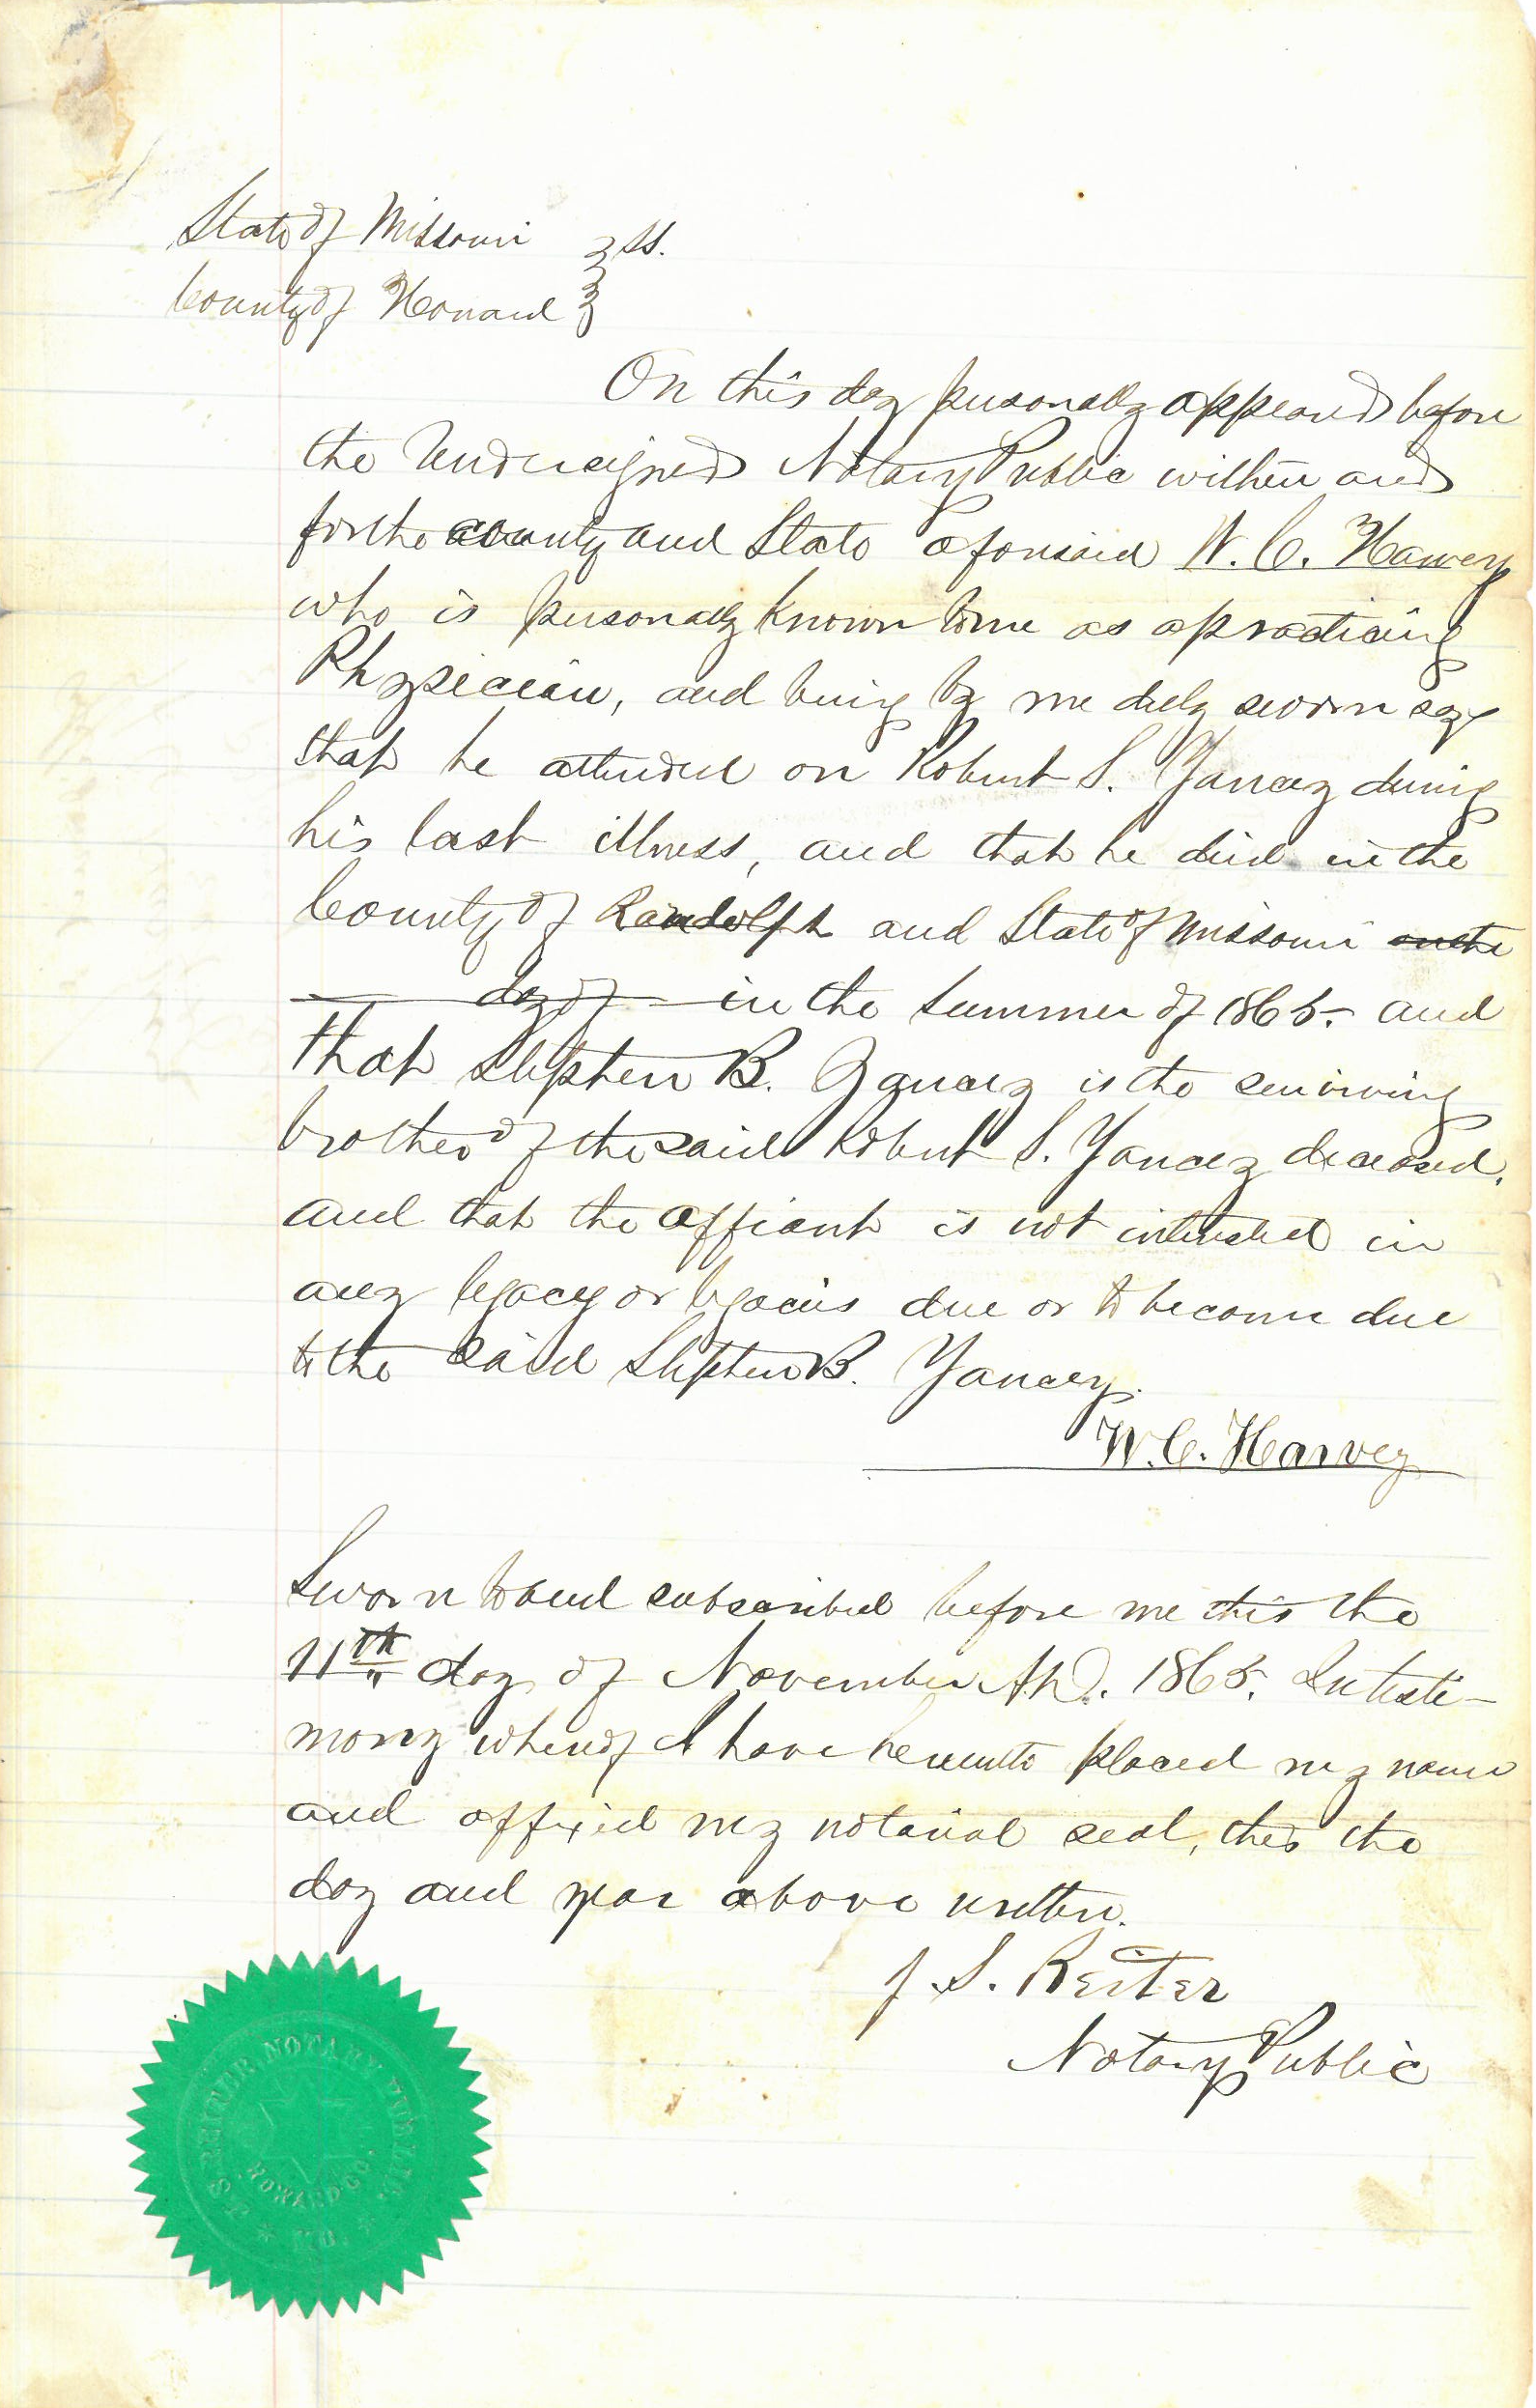 State of Missouri } ss.
County of Howard }
On this day personally appeared before
the undersigned Notary Public within and
for the county and State aforesaid W. C. Harvey
who is personally known to me as a practicing
Physician, and being by me duly sworn says
that he attended on Robert S. Yancey during
his last illness, and that he died in the
County of Randolph and State of Missouri on the
day of in the summer of 1865. and
that Stephen B. Yancey is the surviving
brother of the said Robert S. Yancey deceased.
and that the affiant is not intrested in
any legacy or legacies due or to become due
to the said Stephen B. Yancey.
W. C. Harvey
Sworn to and subscribed before me this the
11th day of November A.D. 1865. In testi-
mony whereof I have hereunto placed my name
and affixed my notarial seal, this the
day and year above written.
J. S. Reiter
Notary Public
NOTARY PUBLIC
HOWARD CO.
* MO. *